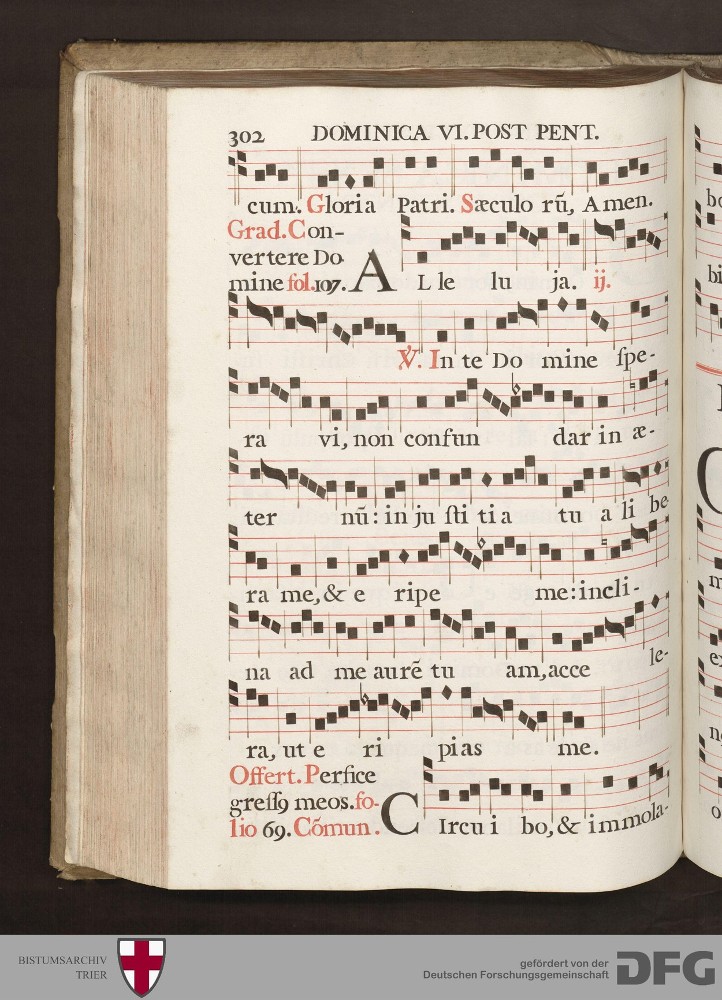 302 DOMINICA VI. POST PENT.
cum. Gloria Patri. Sæculo rũ, Amen.
Grad. Con-
vertere Do-
mine fol. 107. A L le lu ja. ij.
℣. In te Do mine ſpe-
ra vi, non confun dar in æ-
ter nũ: in ju ſti ti a tu a li be
ra me, & e ripe me: incli-
na ad me aurẽ tu am, acce le-
ra, ut e ri pias me.
Offert. Perfice
greſſꝰ meos. fo-
lio 69. Cõmun. C Ircu i bo, & immola-
BISTUMSARCHIV
TRIER
gefördert von der
Deutschen Forschungsgemeinschaft
DFG